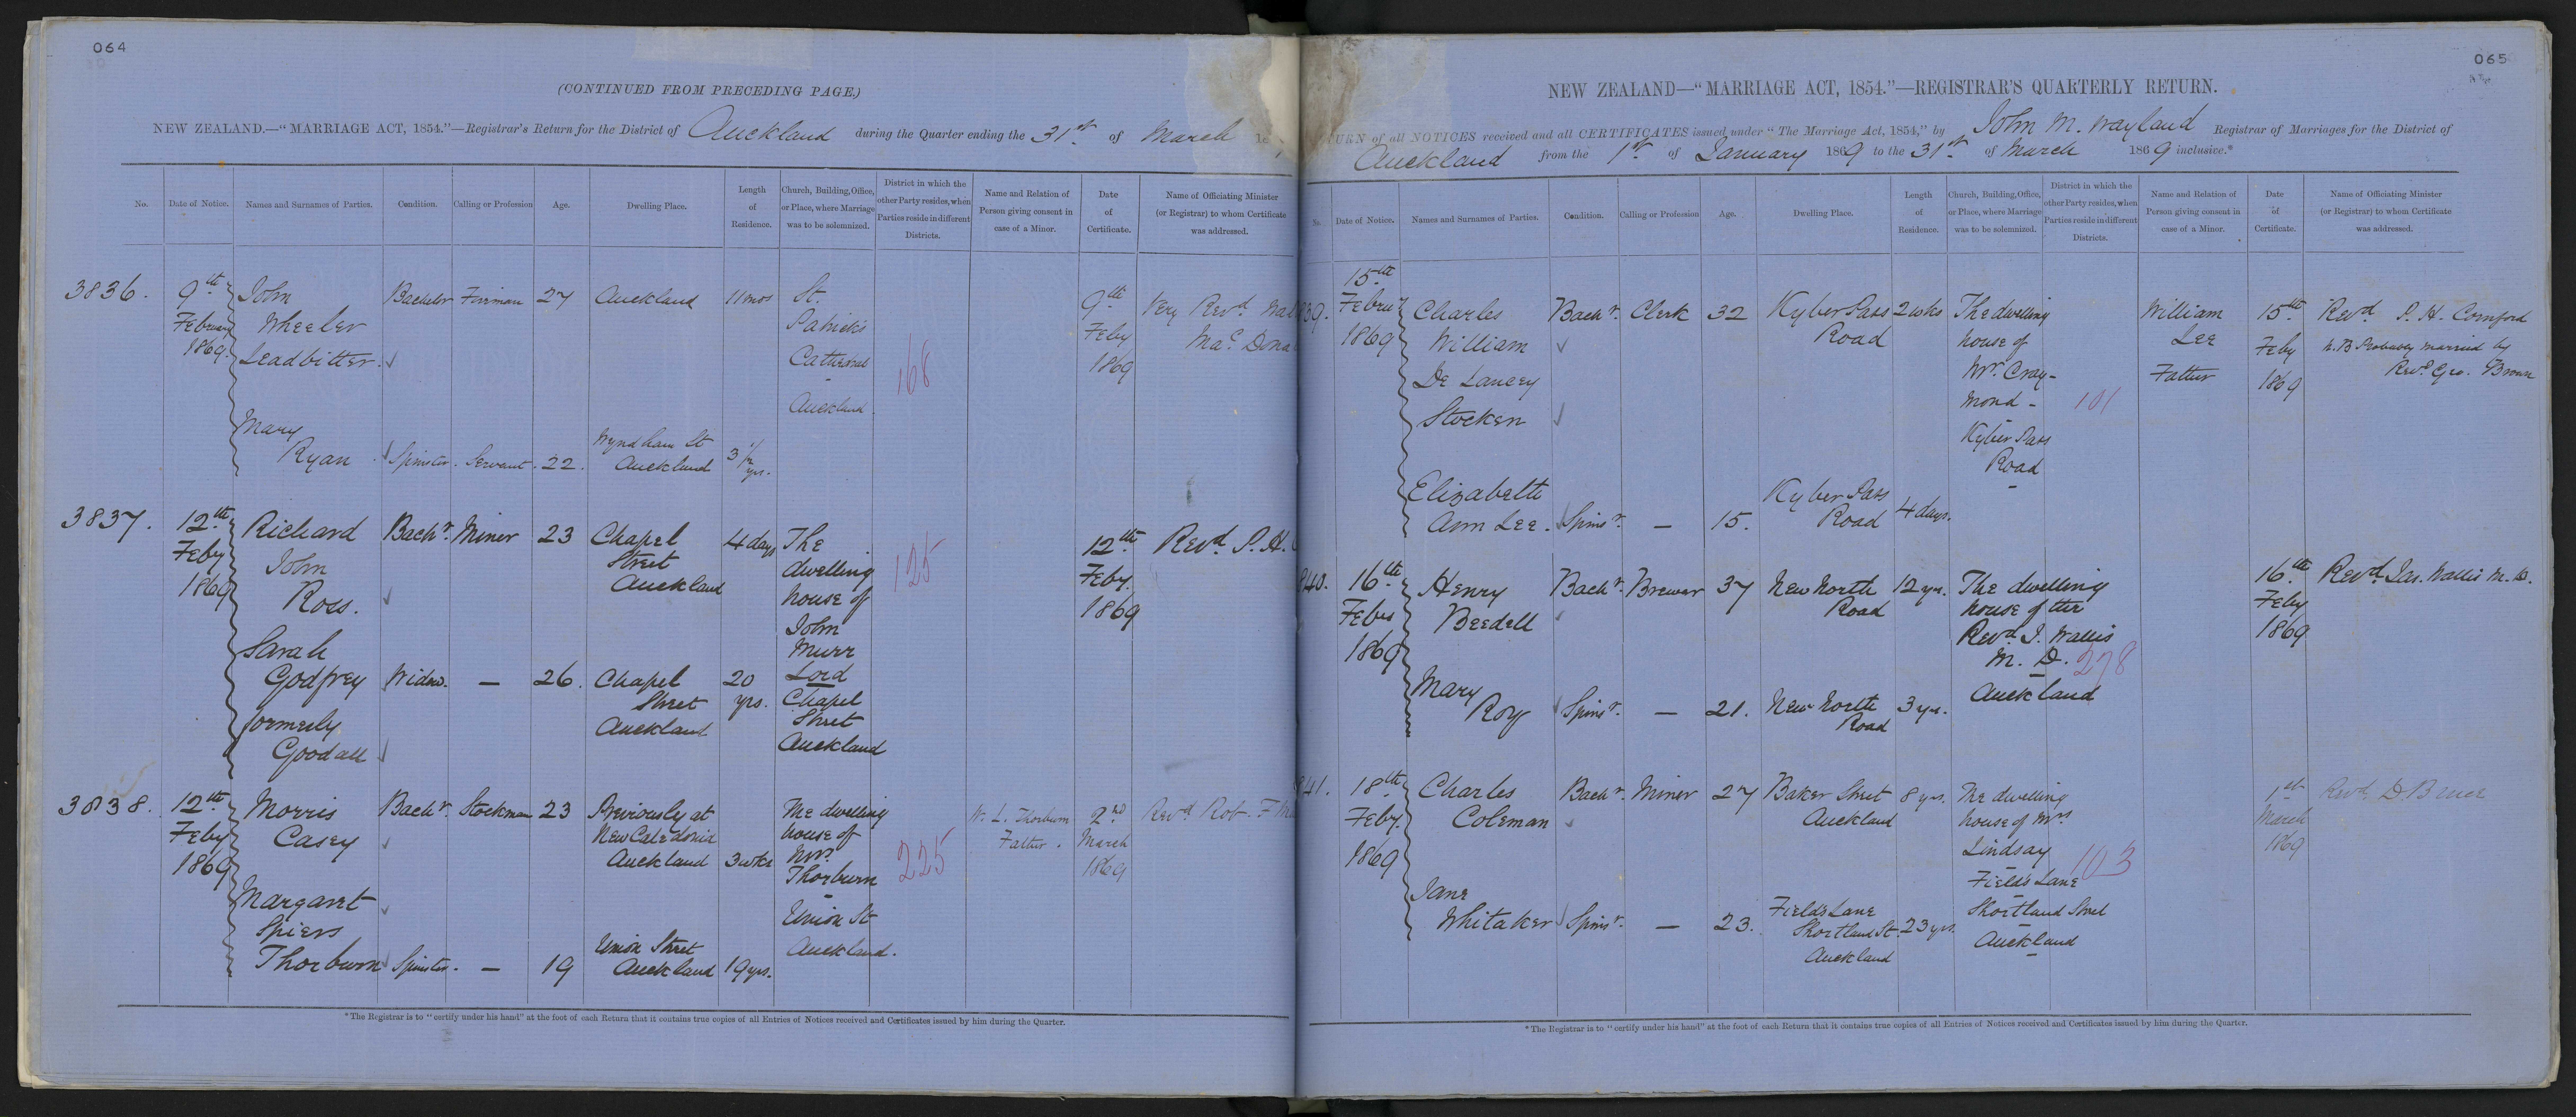 064
(CONTINUED FROM PRECEDING PAGE.)
NEW ZEALAND.—"MARRIAGE ACT, 1854."—Registrar's Return for the District of Auckland during the Quarter ending the 31st of March
No. Date of Notice. Names and Surnames of Parties. Condition. Calling or Profession Age. Dwelling Place. Length of Residence. Church, Building, Office, or Place, where Marriage was to be solemnized. District in which the other Party resides, when Parties reside in different Districts. Name and Relation of Person giving consent in case of a Minor. Date of Certificate. Name of Officiating Minister (or Registrar) to whom Certificate was addressed.
3836. 9th John Bachelor Fireman 27 Auckland 11 mos St. 9th Very Revd. Wal
February Wheeler Patrick's Feby Mac Dona
1869. Leadbitter. Cathedral 168 1869
Auckland.
Mary
Ryan Spinster. Servant. 22. Wyndham St Auckland 3 1/2 yrs.
3837. 12th Richard Bachr. Miner 23 Chapel 4 days The 12th Revd. P. H.
Feby John Street dwelling 125 Feby.
1869 Ross. Auckland house of 1869
John
Sarah Murr
Godfrey Widow. — 26. Chapel 20 Lord
formerly Street yrs. Chapel
Goodall Auckland Street
Auckland
3838. 12th Morris Bachr. Stockman 23 Previously at The dwelling W. L. Thorburn 2nd Revd Rob. F. Ma
Feby Casey New Caledonia house of Father. March
1869 Auckland 3 wks Mr. 225 1869
Thorburn
Margaret Union St
Spiers Union Street Auckland.
Thorburn Spinster. — 19 Auckland 19 yrs.
*The Registrar is to "certify under his hand" at the foot of each Return that it contains true copies of all Entries of Notices received and Certificates issued by him during the Quarter.
065
NEW ZEALAND—"MARRIAGE ACT, 1854."—REGISTRAR'S QUARTERLY RETURN.
TURN of all NOTICES received and all CERTIFICATES issued under "The Marriage Act, 1854," by John M. Wayland Registrar of Marriages for the District of
Auckland from the 1st of January 1869 to the 31st of March 1869 inclusive.*
No. Date of Notice. Names and Surnames of Parties. Condition. Calling or Profession Age. Dwelling Place. Length of Residence. Church, Building, Office, or Place, where Marriage was to be solemnized. District in which the other Party resides, when Parties reside in different Districts. Name and Relation of Person giving consent in case of a Minor. Date of Certificate. Name of Officiating Minister (or Registrar) to whom Certificate was addressed.
839. 15th Charles Bachr. Clerk 32 Kyber Pass 2 wks The dwelling William 15th Revd P. H. Cornford
Febru William Road house of Lee Feby n. B Probably married by
1869 De Lancey Mr. Cray- Father 1869 Revd. Geo. Brown
Stocken mond - 101
Kyber Pass
Road
Elizabeth Kyber Pass
Ann Lee. Spinsr. — 15. Road 4 days.
840. 16th Henry Bachr. Brewer 37 New North 12 yrs. The dwelling 16th Revd. Jas. Wallis M. D.
Beedell Road house of the Feby
1869 Revd. J. Wallis 1869
M. D. 278
Mary Auckland
Roy Spinsr. — 21. New North Road 3 yrs.
841. 18th Charles Bachr. Miner 27 Baker Street 8 yrs. The dwelling 1st Revd. D. Bruce
Feby. Coleman Auckland house of Mrs March
1869 Lindsay 103 1869
Fields Lane
Jane Fields Lane Shortland Street
Whitaker Spinsr. — 23. Shortland St. 23 yrs. Auckland
Auckland
*The Registrar is to "certify under his hand" at the foot of each Return that it contains true copies of all Entries of Notices received and Certificates issued by him during the Quarter.